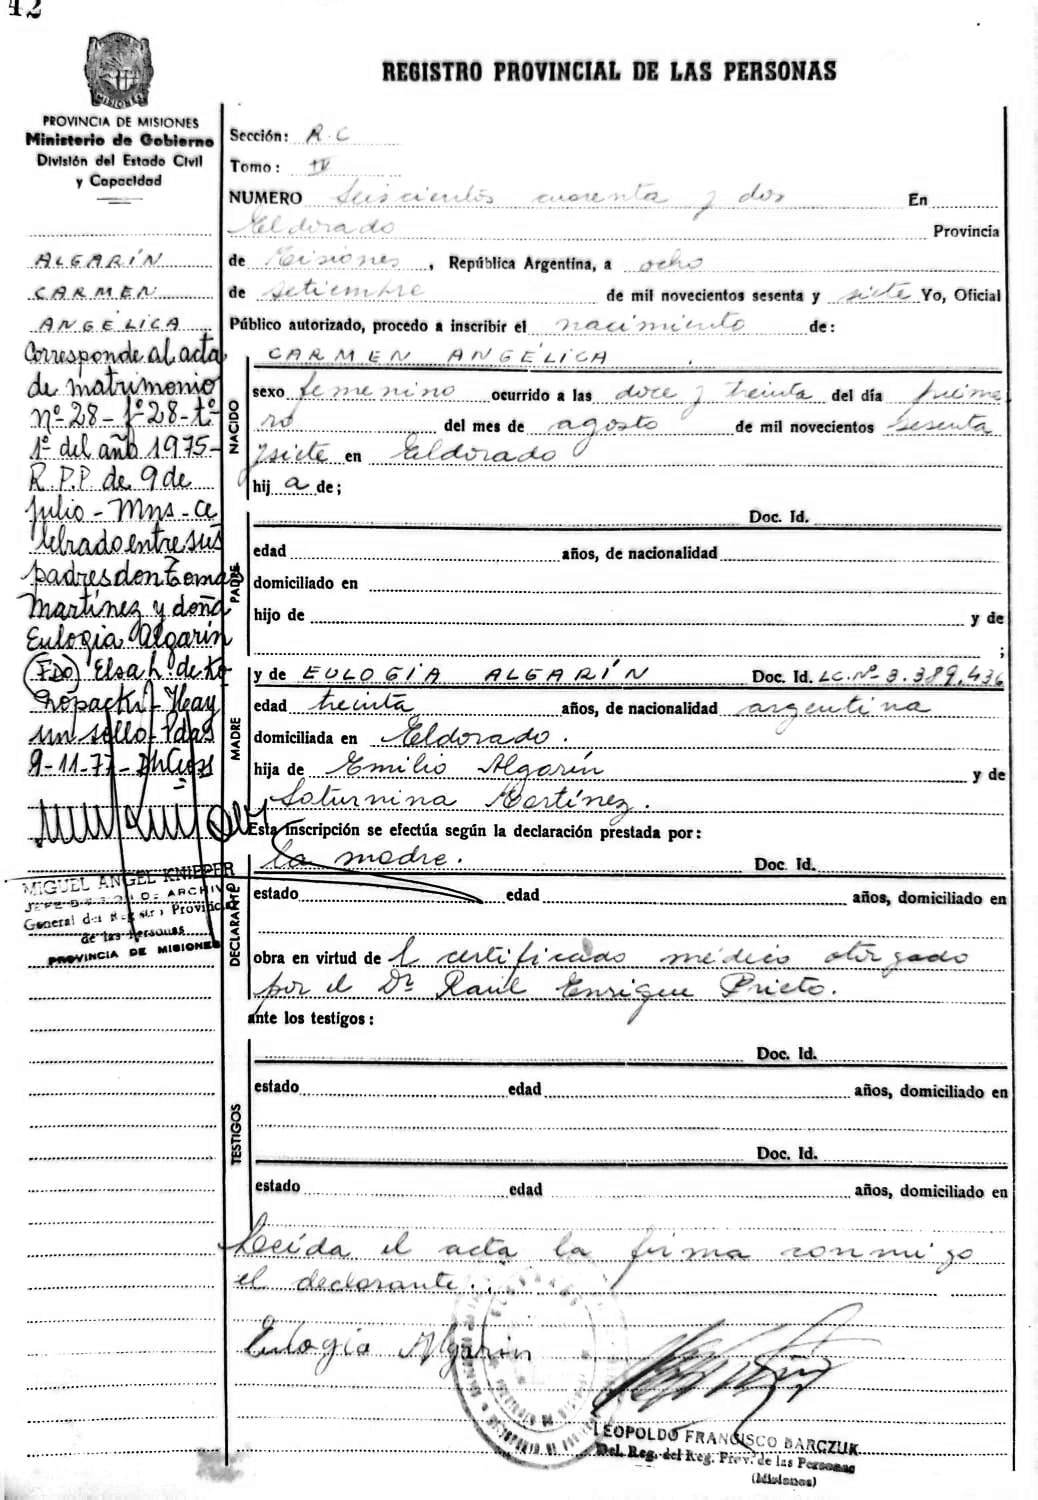 42
REGISTRO PROVINCIAL DE LAS PERSONAS
MISIONES
PROVINCIA DE MISIONES
Ministerio de Gobierno
División del Estado Civil
y Capacidad
ALGARÍN
CARMEN
ANGÉLICA
Corresponde al acta
de matrimonio
nº 28 - fº 28 - tº
1º del año 1975 -
R.P.P. de 9 de
Julio - Mns - ce
lebrado entre sus
padres don Tomas
Martínez y doña
Eulogia Algarín
(FDO) Elsa L. de Ko
ropacki - Hay
un sello - Pdas
9-11-77 -
MIGUEL ANGEL KNIPPER
JEFE ARCHIVO
General del Registro Provincial
de las Personas
PROVINCIA DE MISIONES
Sección: R.C
Tomo: IV
NUMERO Seiscientos cuarenta y dos En
Eldorado Provincia
de Misiones, República Argentina, a ocho
de setiembre de mil novecientos sesenta y siete Yo, Oficial
Público autorizado, procedo a inscribir el nacimiento de:
NACIDO
CARMEN ANGÉLICA
sexo femenino ocurrido a las doce y treinta del día prime-
ro del mes de agosto de mil novecientos sesenta
y siete en Eldorado
hij a de;
PADRE
Doc. Id.
edad años, de nacionalidad
domiciliado en
hijo de y de
;
MADRE
y de EULOGIA ALGARÍN Doc. Id. LC. Nº 3.389.436
edad treinta años, de nacionalidad argentina
domiciliada en Eldorado.
hija de Emilio Algarín y de
Saturnina Martínez.
Esta inscripción se efectúa según la declaración prestada por:
DECLARANTE
la madre. Doc. Id.
estado edad años, domiciliado en
obra en virtud de l certificado médico otorgado
por el Dr. Raúl Enrique Prieto.
ante los testigos:
TESTIGOS
Doc. Id.
estado edad años, domiciliado en
Doc. Id.
estado edad años, domiciliado en
Leída el acta la firma conmigo
el declarante.
Eulogia Algarin
LEOPOLDO FRANCISCO BARCZUK
Del. Reg. del Reg. Prov. de las Personas
(Misiones)